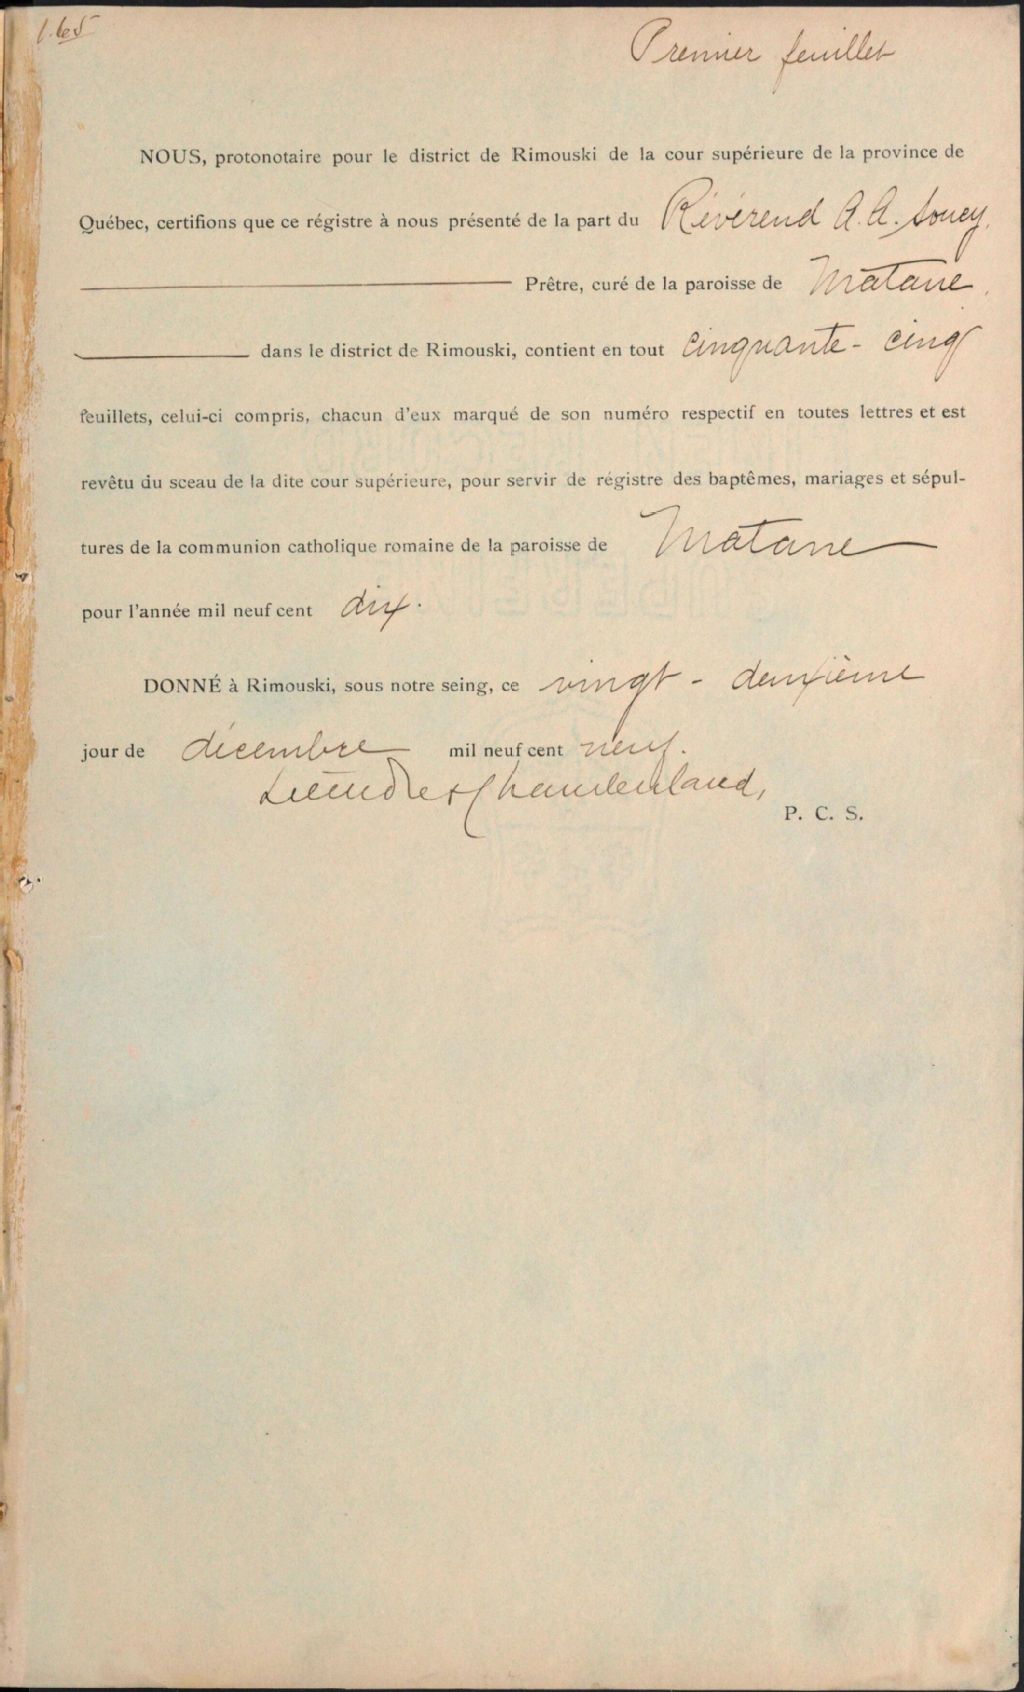 Premier feuillet
NOUS, protonotaire pour le district de Rimouski de la cour supérieure de la province de
Québec, certifions que ce régistre à nous présenté de la part du Révérend A. A. Soucy,
Prêtre, curé de la paroisse de Matane,
dans le district de Rimouski, contient en tout cinquante-cinq
feuillets, celui-ci compris, chacun d'eux marqué de son numéro respectif en toutes lettres et est
revêtu du sceau de la dite cour supérieure, pour servir de régistre des baptêmes, mariages et sépul-
tures de la communion catholique romaine de la paroisse de Matane
pour l'année mil neuf cent dix.
DONNÉ à Rimouski, sous notre seing, ce vingt-deuxième
jour de décembre mil neuf cent neuf.
Chamberland,
P. C. S.